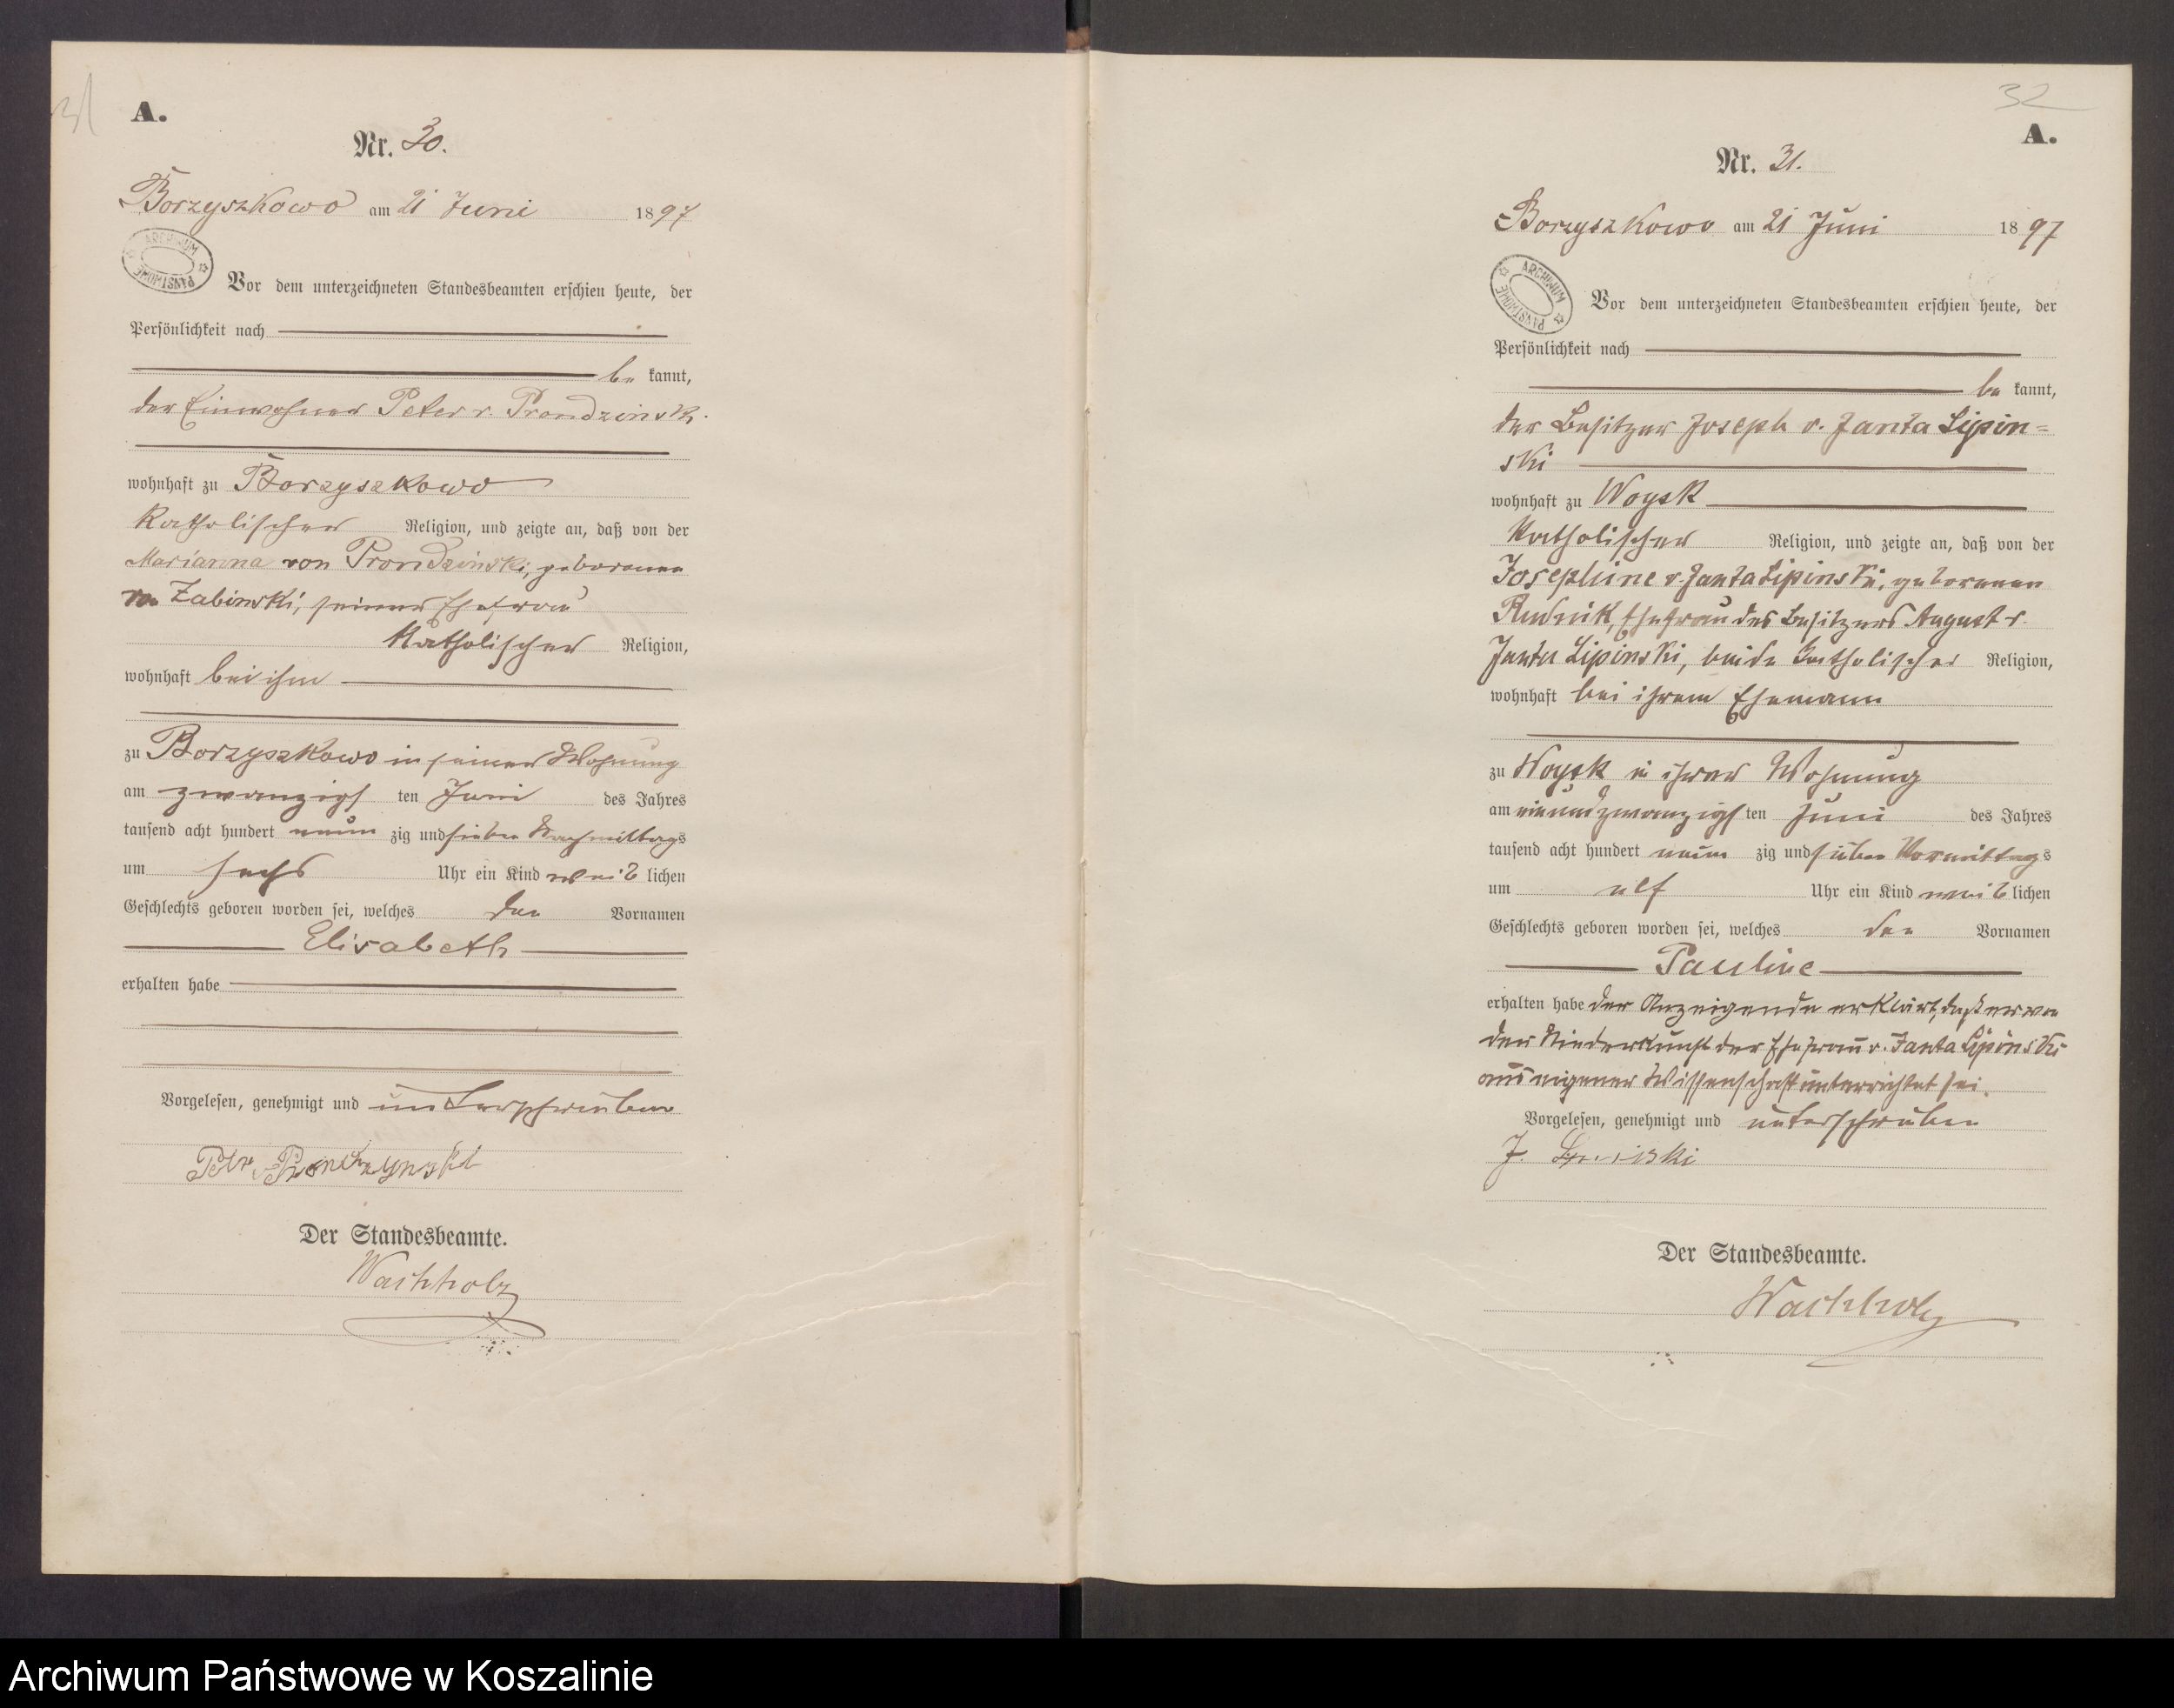 31
A.
Nr. 30.
Borzyszkowo am 21 Juni 1897
ARCHIWUM PAŃSTWOWE
Vor dem unterzeichneten Standesbeamten erschien heute, der
Persönlichkeit nach
be kannt,
der Einwohner Peter v. Prondzinski
wohnhaft zu Borzyszkowo
katholischer Religion, und zeigte an, daß von der
Marianna von Prondzinski, geborenen
von Zabinski, seiner Ehefrau
katholischer Religion,
wohnhaft bei ihm
zu Borzyszkowo in seiner Wohnung
am zwanzigs ten Juni des Jahres
tausend acht hundert neun zig und sieben Nachmittags
um sechs Uhr ein Kind weib lichen
Geschlechts geboren worden sei, welches den Vornamen
Elisabeth
erhalten habe
Vorgelesen, genehmigt und unterschrieben
Der Standesbeamte.
Wachholz
32
A.
Nr. 31.
Borzyszkowo am 21 Juni 1897
ARCHIWUM PAŃSTWOWE
Vor dem unterzeichneten Standesbeamten erschien heute, der
Persönlichkeit nach
be kannt,
der Besitzer Joseph v. Janta Lipin=
ski
wohnhaft zu Woysk
katholischer Religion, und zeigte an, daß von der
Josephine v. Janta Lipinski, geborenen
Rudnik, Ehefrau des Besitzers August v.
Janta Lipinski, beide katholischer Religion,
wohnhaft bei ihrem Ehemann
zu Woysk in ihrer Wohnung
am einundzwanzigs ten Juni des Jahres
tausend acht hundert neun zig und sieben Vormittags
um elf Uhr ein Kind weib lichen
Geschlechts geboren worden sei, welches den Vornamen
Pauline
erhalten habe der Anzeigende erklärt, daß er von
der Niederkunft der Ehefrau v. Janta Lipinski
aus eigener Wissenschaft unterrichtet sei.
Vorgelesen, genehmigt und unterschrieben
J.
Der Standesbeamte.
Wachholz
Archiwum Państwowe w Koszalinie